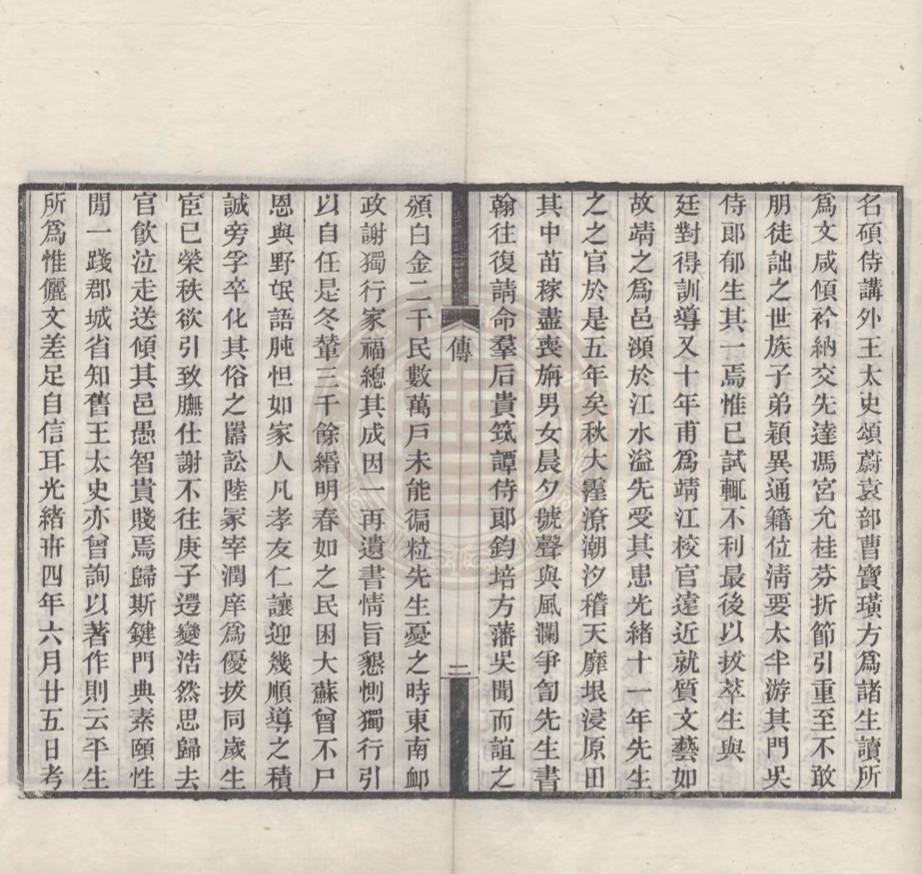 名碩侍講外王太史頌蔚袁部曹寶璜方爲諸生讀所
爲文咸傾衿納交先達馮宮允桂芬折節引重至不敢
朋徒詘之世族子弟穎異通籍位淸要太半游其門吳
侍郎郁生其一焉惟已試輒不利最後以拔萃生與
廷對得訓導又十年甫爲靖江校官遠近就質文藝如
故靖之爲邑瀕於江水溢先受其患光緒十一年先生
之之官於是五年矣秋大霪潦潮汐稽天靡垠浸原田
其中苗稼盡喪旃男女晨夕號聲與風瀾爭訇先生書
翰往復請命羣后貴筑譚侍郎鈞培方藩吳聞而誼之
傳
二
頒白金二千民數萬戶未能徧粒先生憂之時東南䘏
政謝獨行家福總其成因一再遺書情旨懇惻獨行引
以自任是冬輦三千餘緡明春如之民困大蘇曾不尸
恩與野氓語肫怛如家人凡孝友仁讓迎幾順導之積
誠旁孚卒化其俗之嚚訟陸冢宰潤庠爲優拔同歲生
宦已榮秩欲引致膴仕謝不往庚子遝變浩然思歸去
官飮泣走送傾其邑愚智貴賤焉歸斯鍵門典素頤性
閒一踐郡城省知舊王太史亦曾詢以著作則云平生
所爲惟儷文差足自信耳光緖卅四年六月廿五日考